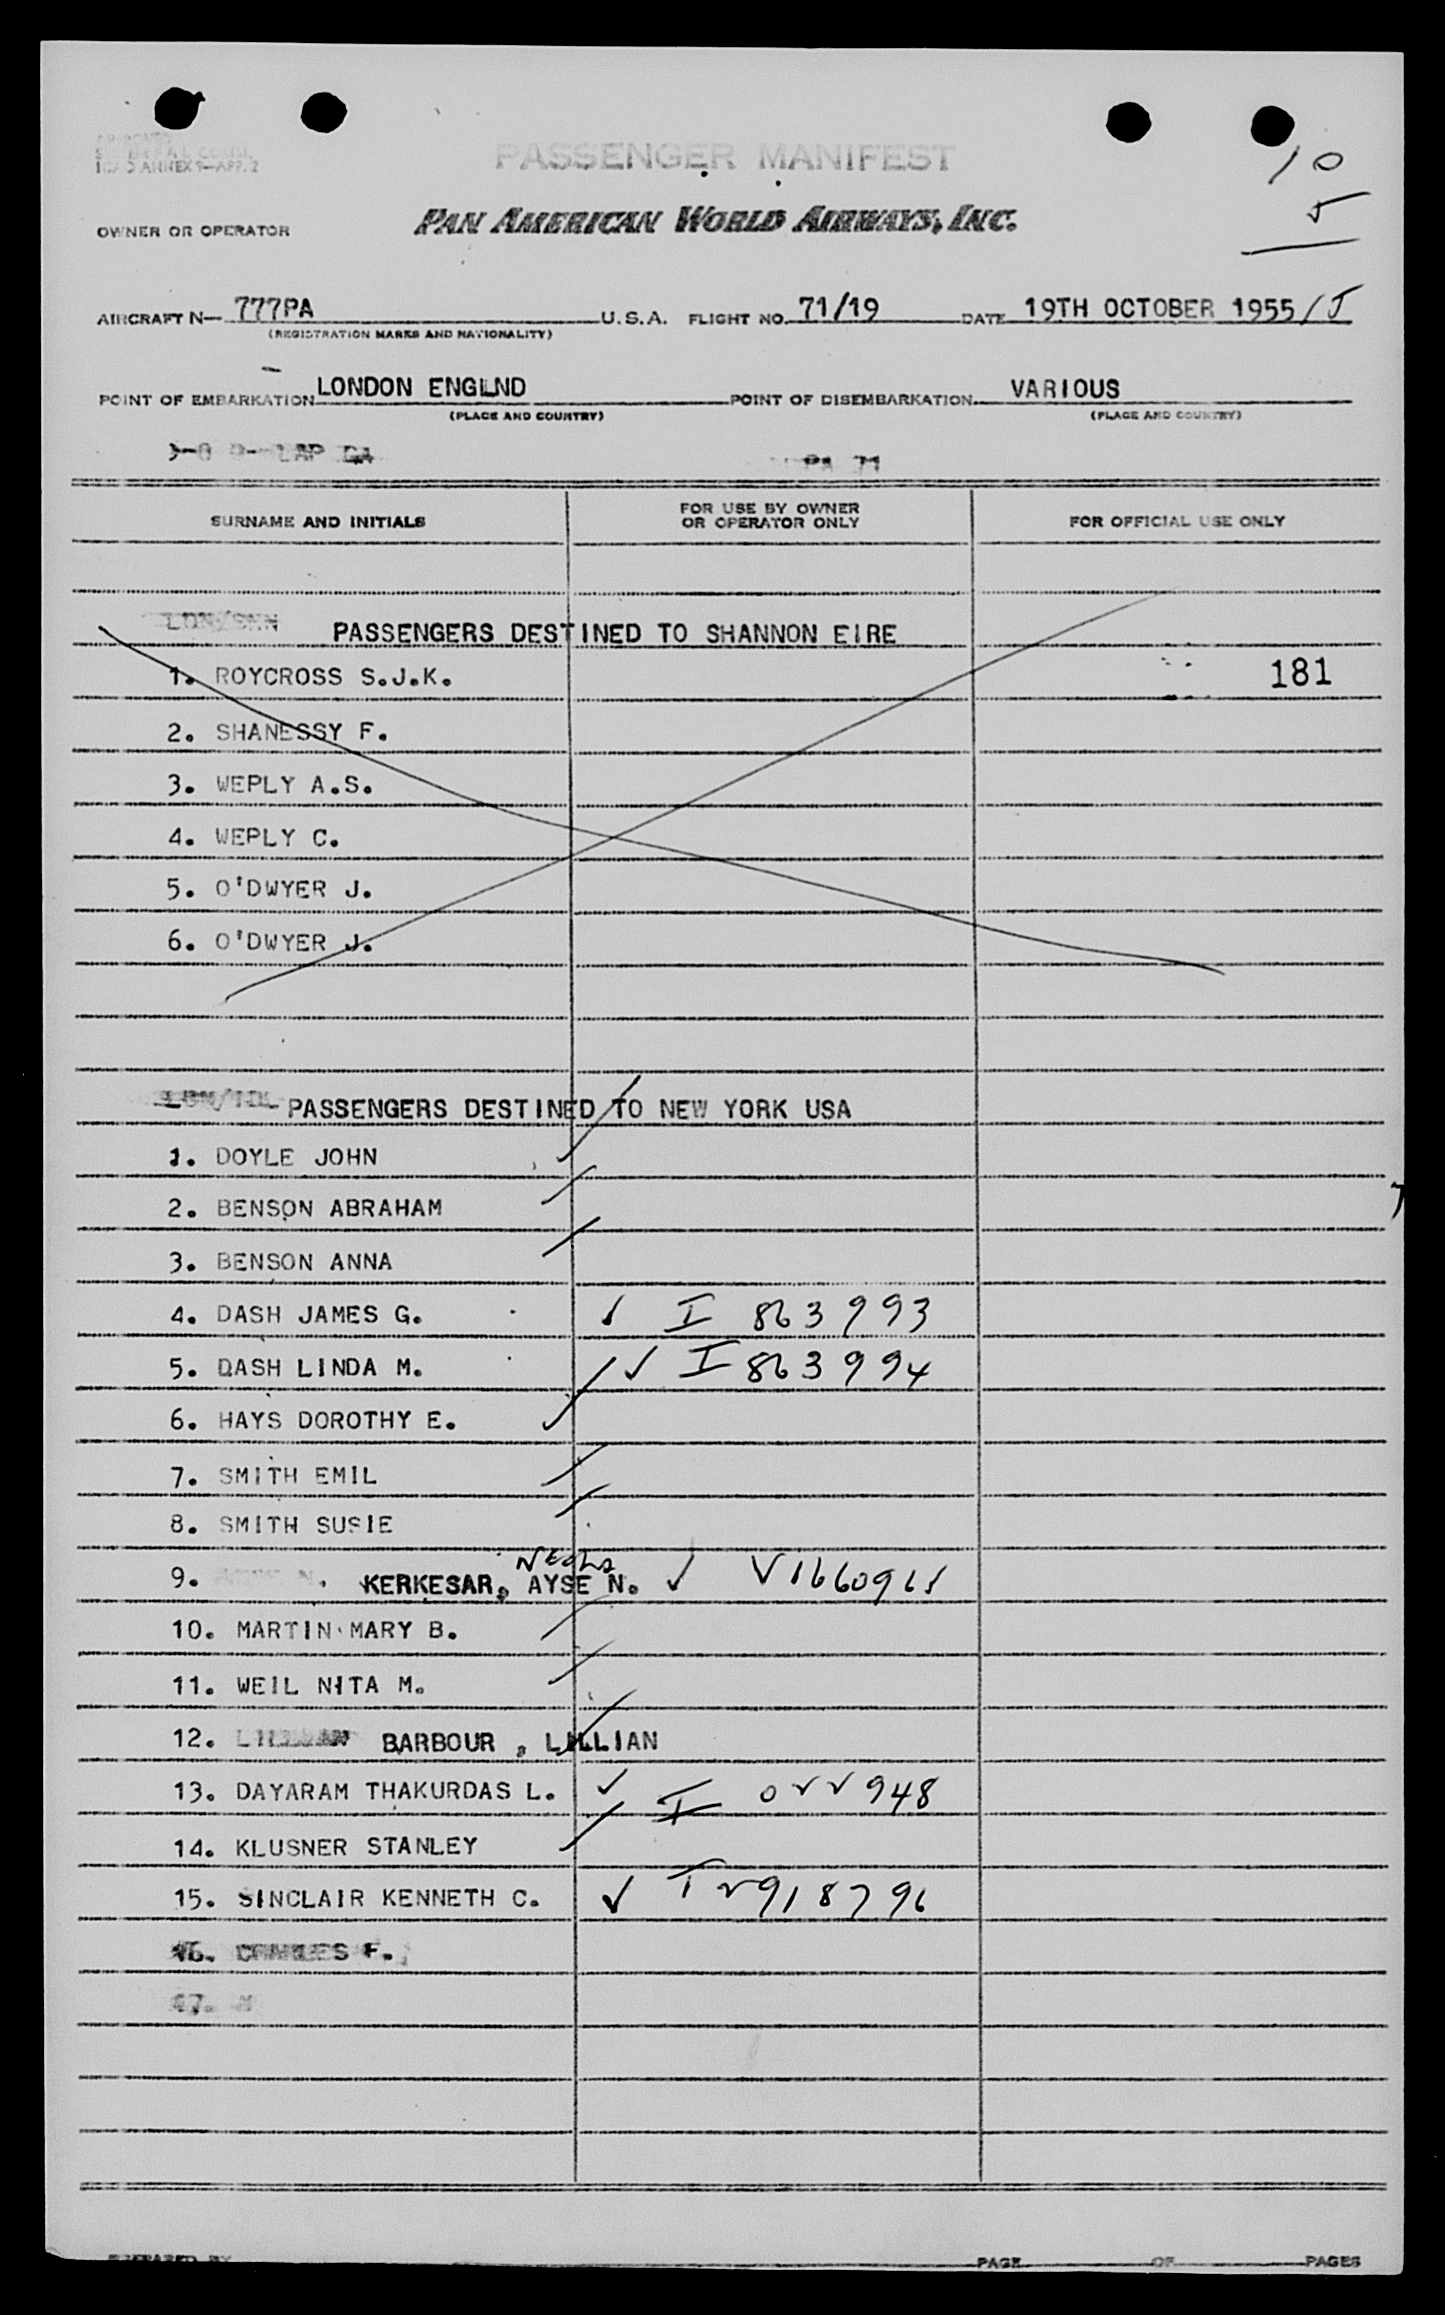 PASSENGER MANIFEST
10
5
OWNER OR OPERATOR PAN AMERICAN WORLD AIRWAYS, INC.
AIRCRAFT N- 777PA U.S.A. FLIGHT NO. 71/19 DATE 19TH OCTOBER 1955
15
(REGISTRATION MARKS AND NATIONALITY)
POINT OF EMBARKATION LONDON ENGLND POINT OF DISEMBARKATION VARIOUS
(PLACE AND COUNTRY) (PLACE AND COUNTRY)
PA 71
SURNAME AND INITIALS FOR USE BY OWNER OR OPERATOR ONLY FOR OFFICIAL USE ONLY
LON/SNN PASSENGERS DESTINED TO SHANNON EIRE
1. ROYCROSS S.J.K. 181
2. SHANESSY F.
3. WEPLY A.S.
4. WEPLY C.
5. O'DWYER J.
6. O'DWYER J.
PASSENGERS DESTINED TO NEW YORK USA
1. DOYLE JOHN
2. BENSON ABRAHAM
3. BENSON ANNA
4. DASH JAMES G. ✓ I 863993
5. DASH LINDA M. ✓ I 863994
6. HAYS DOROTHY E.
7. SMITH EMIL
8. SMITH SUSIE
9. KERKESAR, AYSE N. ✓ V1660961
10. MARTIN MARY B.
11. WEIL NITA M.
12. BARBOUR , LILLIAN
13. DAYARAM THAKURDAS L. ✓ I 022948
14. KLUSNER STANLEY
15. SINCLAIR KENNETH C. ✓ I 2918796
16. CHARLES F.
17.
PREPARED BY PAGE OF PAGES